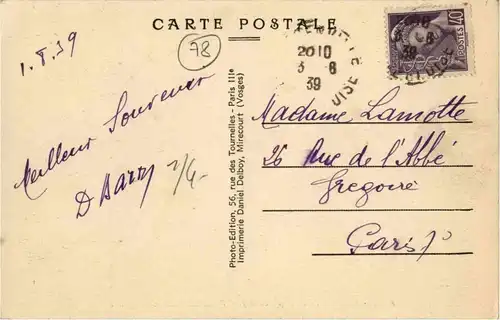 CARTE POSTALE
78
1.8.39
2010
3 - 8
39
OISE
40
POSTES
Meilleur Souvenir
D Barry
Photo-Edition, 56, rue des Tournelles - Paris IIIe
Imprimerie Daniel Delboy, Mirecourt (Vosges)
Madame Lamotte
26 Rue de l'Abbé
Gregoire
Paris